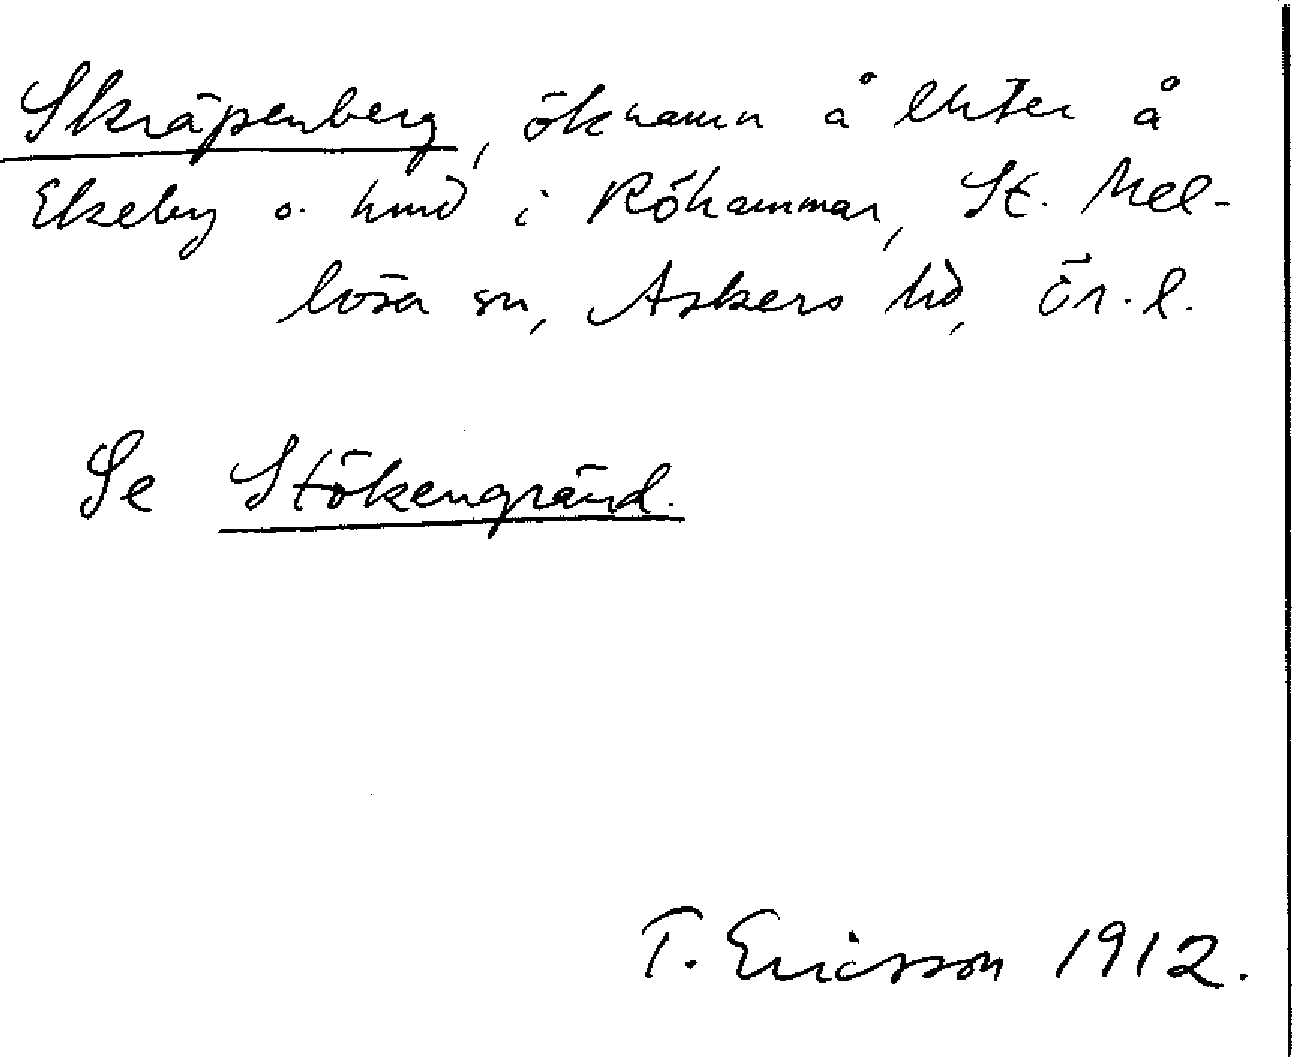 Skräpenberg, öknamn å lhter å
Ekeby o. hmd i Röhammar, St. Mel-
lösa sn, Askers hd, Ör. l.
Se Stökengränd.
T. Ericsson 1912.